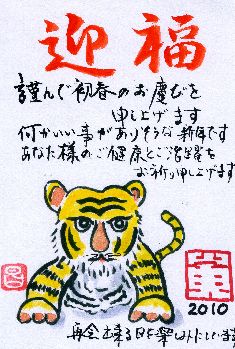 迎福
謹んで初春のお慶びを
申し上げます
何かいい事がありそうな新年です
あなた様のご健康とご活躍を
お祈り申し上げます
2010
再会出来る日を楽しみにしています